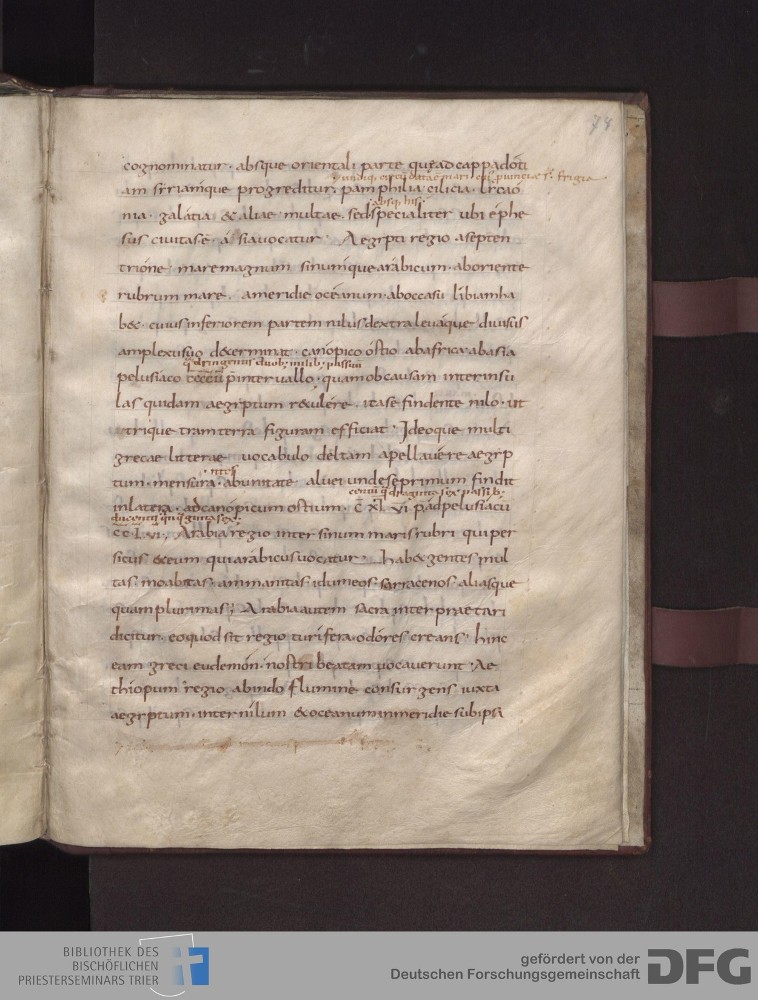 74
cognominatur · absque orientali parte que ad cappadoti
am siriamque progreditur; pamphilia cilicia · licao
absq; his·
nia · galatia & aliae multae · sed specialiter ubi éphe
sus civitas e · ásia vocatur · Aegypti regio asepten
trióne mare magnum sinumque arabicum · aboriente
rubrum mare · ameridie océanum · aboccasu libiam ha
bet · cuius inferiorem partem nilus dextra levaque divisus
amplexu suo determinat · canópico óstio ab africa · ab asia
pelusiaco intervallo · quam ob causam inter insu
las quidam aegyptum retulére · ita se findente nilo · ut
trique tram terra figuram efficiat · Ideoque multi
grecae litterae vocabulo deltam apellavére aegyp
tum · mensura · ab unitate alvei unde se primum findit
in latera · ad canópicum ostium · c̄ XL VI p ad pelusiacū
ducenti quinquaginta sex·
c̄c̄ L VI; Arabia regio inter sinum maris rubri qui per
sicus & eum qui arabicus vocatur · habet gentes mul
tas · moabitas · ammanitas · idumeos · sarracenos · aliasque
quam plurimas; Arabia autem sacra interpraetari
dicitur · eo quod sit regio turifera · odóres creans · hinc
eam greci eudemón · nostri beatam vocaverunt · Ae
thiopum regio, ab indo flumine consurgens iuxta
aegyptum · inter nilum & oceanum in meridie sub ipsa
BIBLIOTHEK DES
BISCHÖFLICHEN
PRIESTERSEMINARS TRIER
gefördert von der
Deutschen Forschungsgemeinschaft
DFG